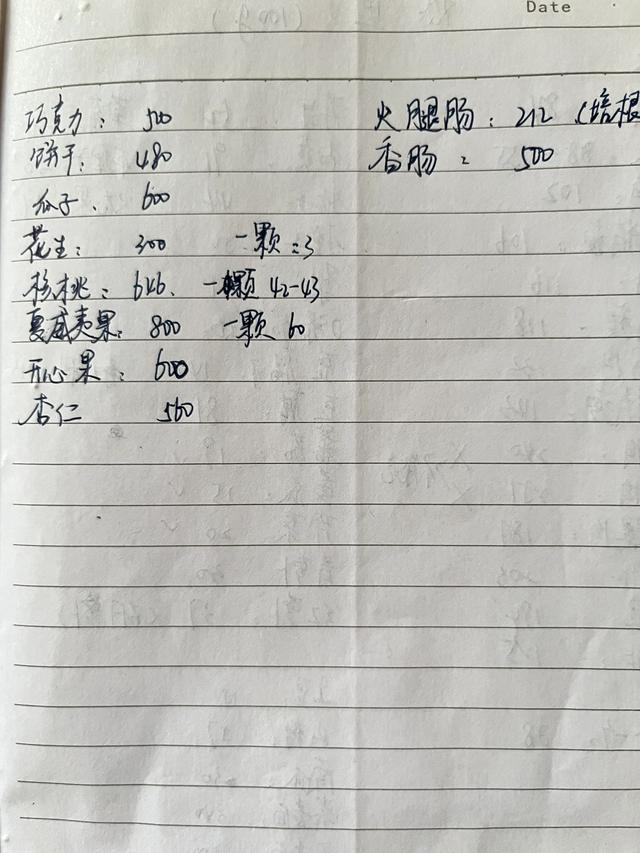 Date
巧克力: 500
饼干: 480
瓜子. 600
花生: 300 一颗:3
核桃: 646. 一颗 42-43
夏威夷果: 800 一颗 60
开心果: 600
杏仁 560
火腿肠: 212 (培根
香肠: 500